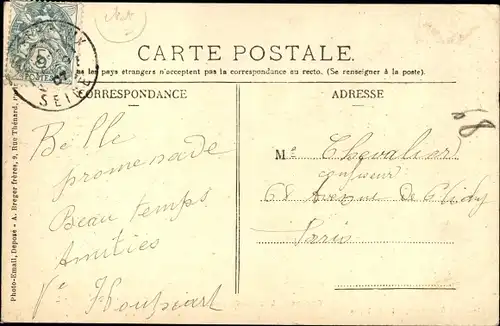 CARTE POSTALE.
les pays étrangers n'acceptent pas la correspondance au recto. (Se renseigner à la poste).
CORRESPONDANCE
ADRESSE
68
Belle
promenade
Beau temps
Amitiés
Mr Chevalier
68 Avenue De Clichy
Paris
Photo-Email, Deposé - A. Breger frères, 9, Rue Thénard,
POSTES
5
SEINE